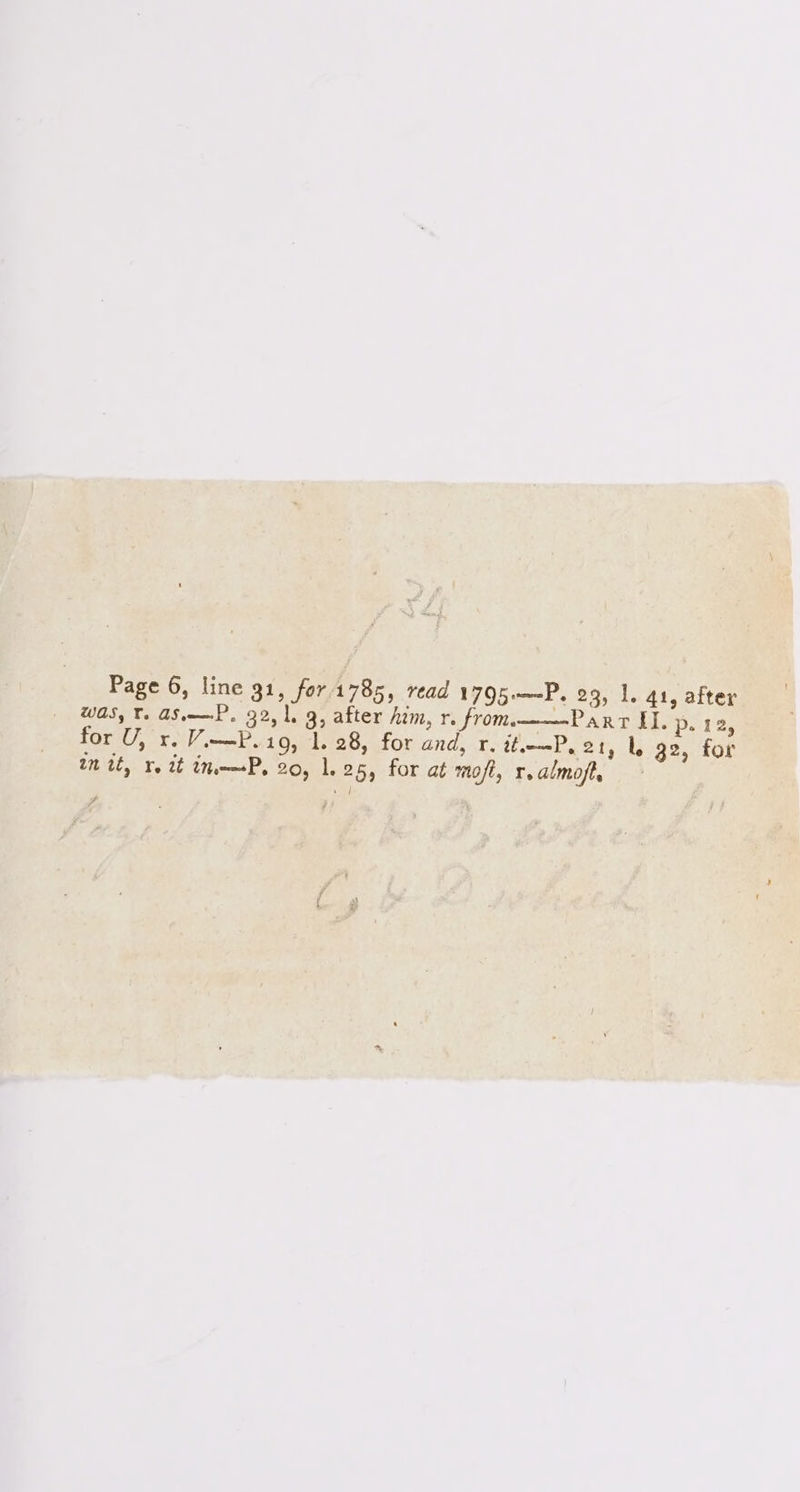 Page 6, line 31, for 1785, read 1795.—P. 23, l. 41, after
was, r. as.—P. 32, l. 3, after him, r. from.——PART II. p. 12,
for U, r. V.—P. 19, l. 28, for and, r. it.—P. 21, l. 32, for
in it, r. it in.—P. 20, l. 25, for at moſt, r. almoſt.